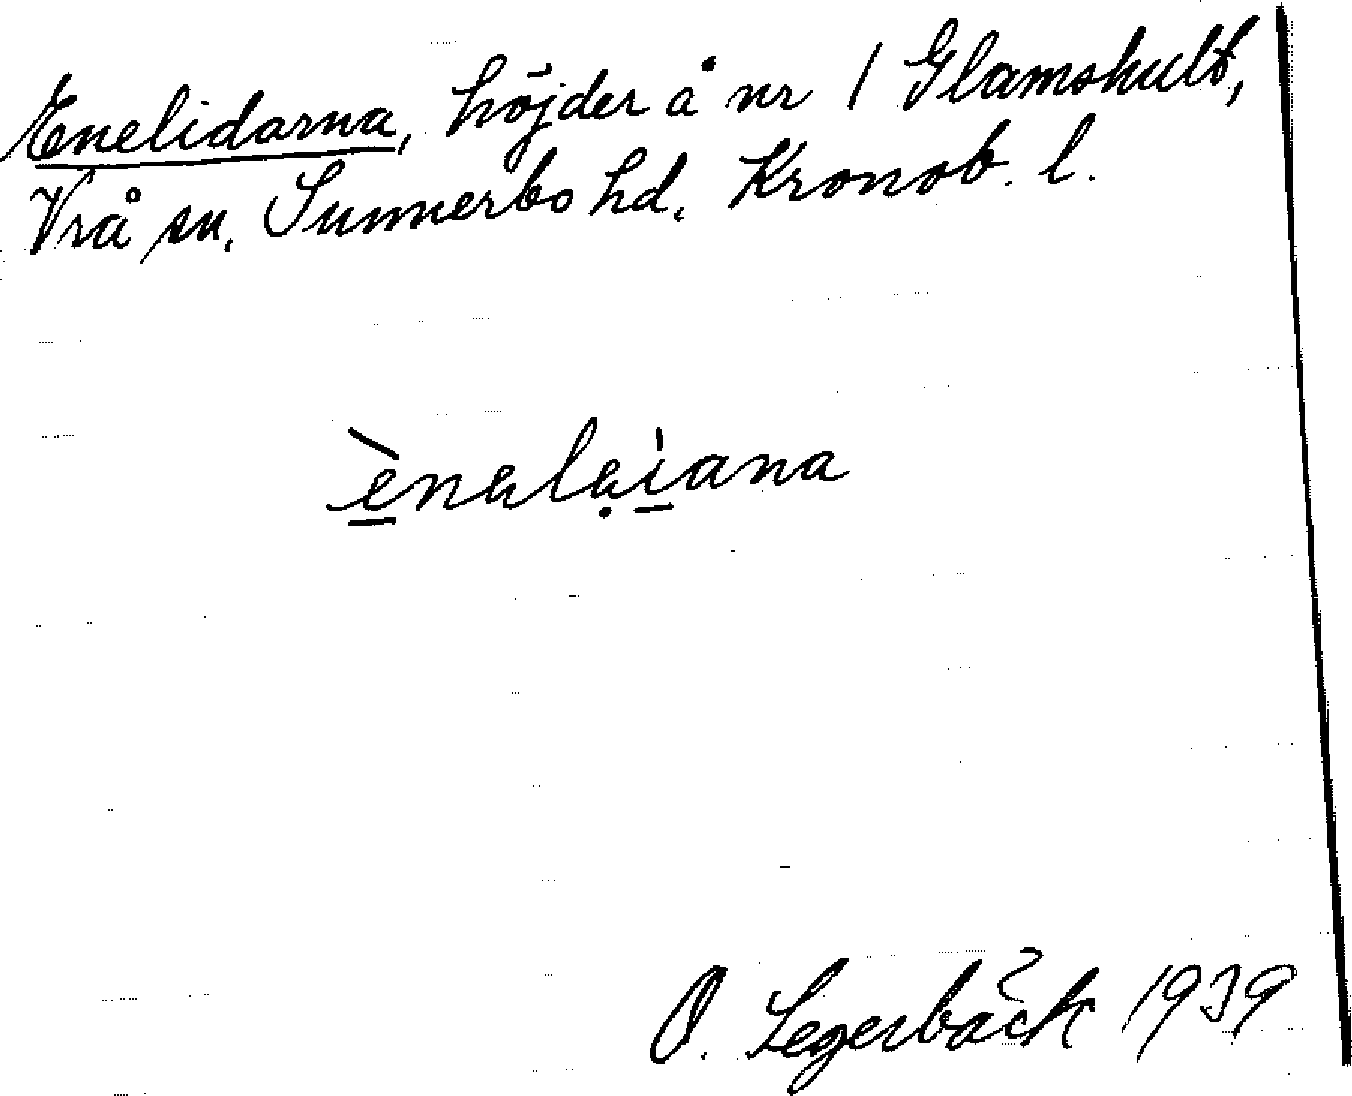 Enelidarna, höjder å nr 1 Glamshult,
Vrå sn, Sunnerbo hd, Kronob. l.
O. Legerbäck 1939